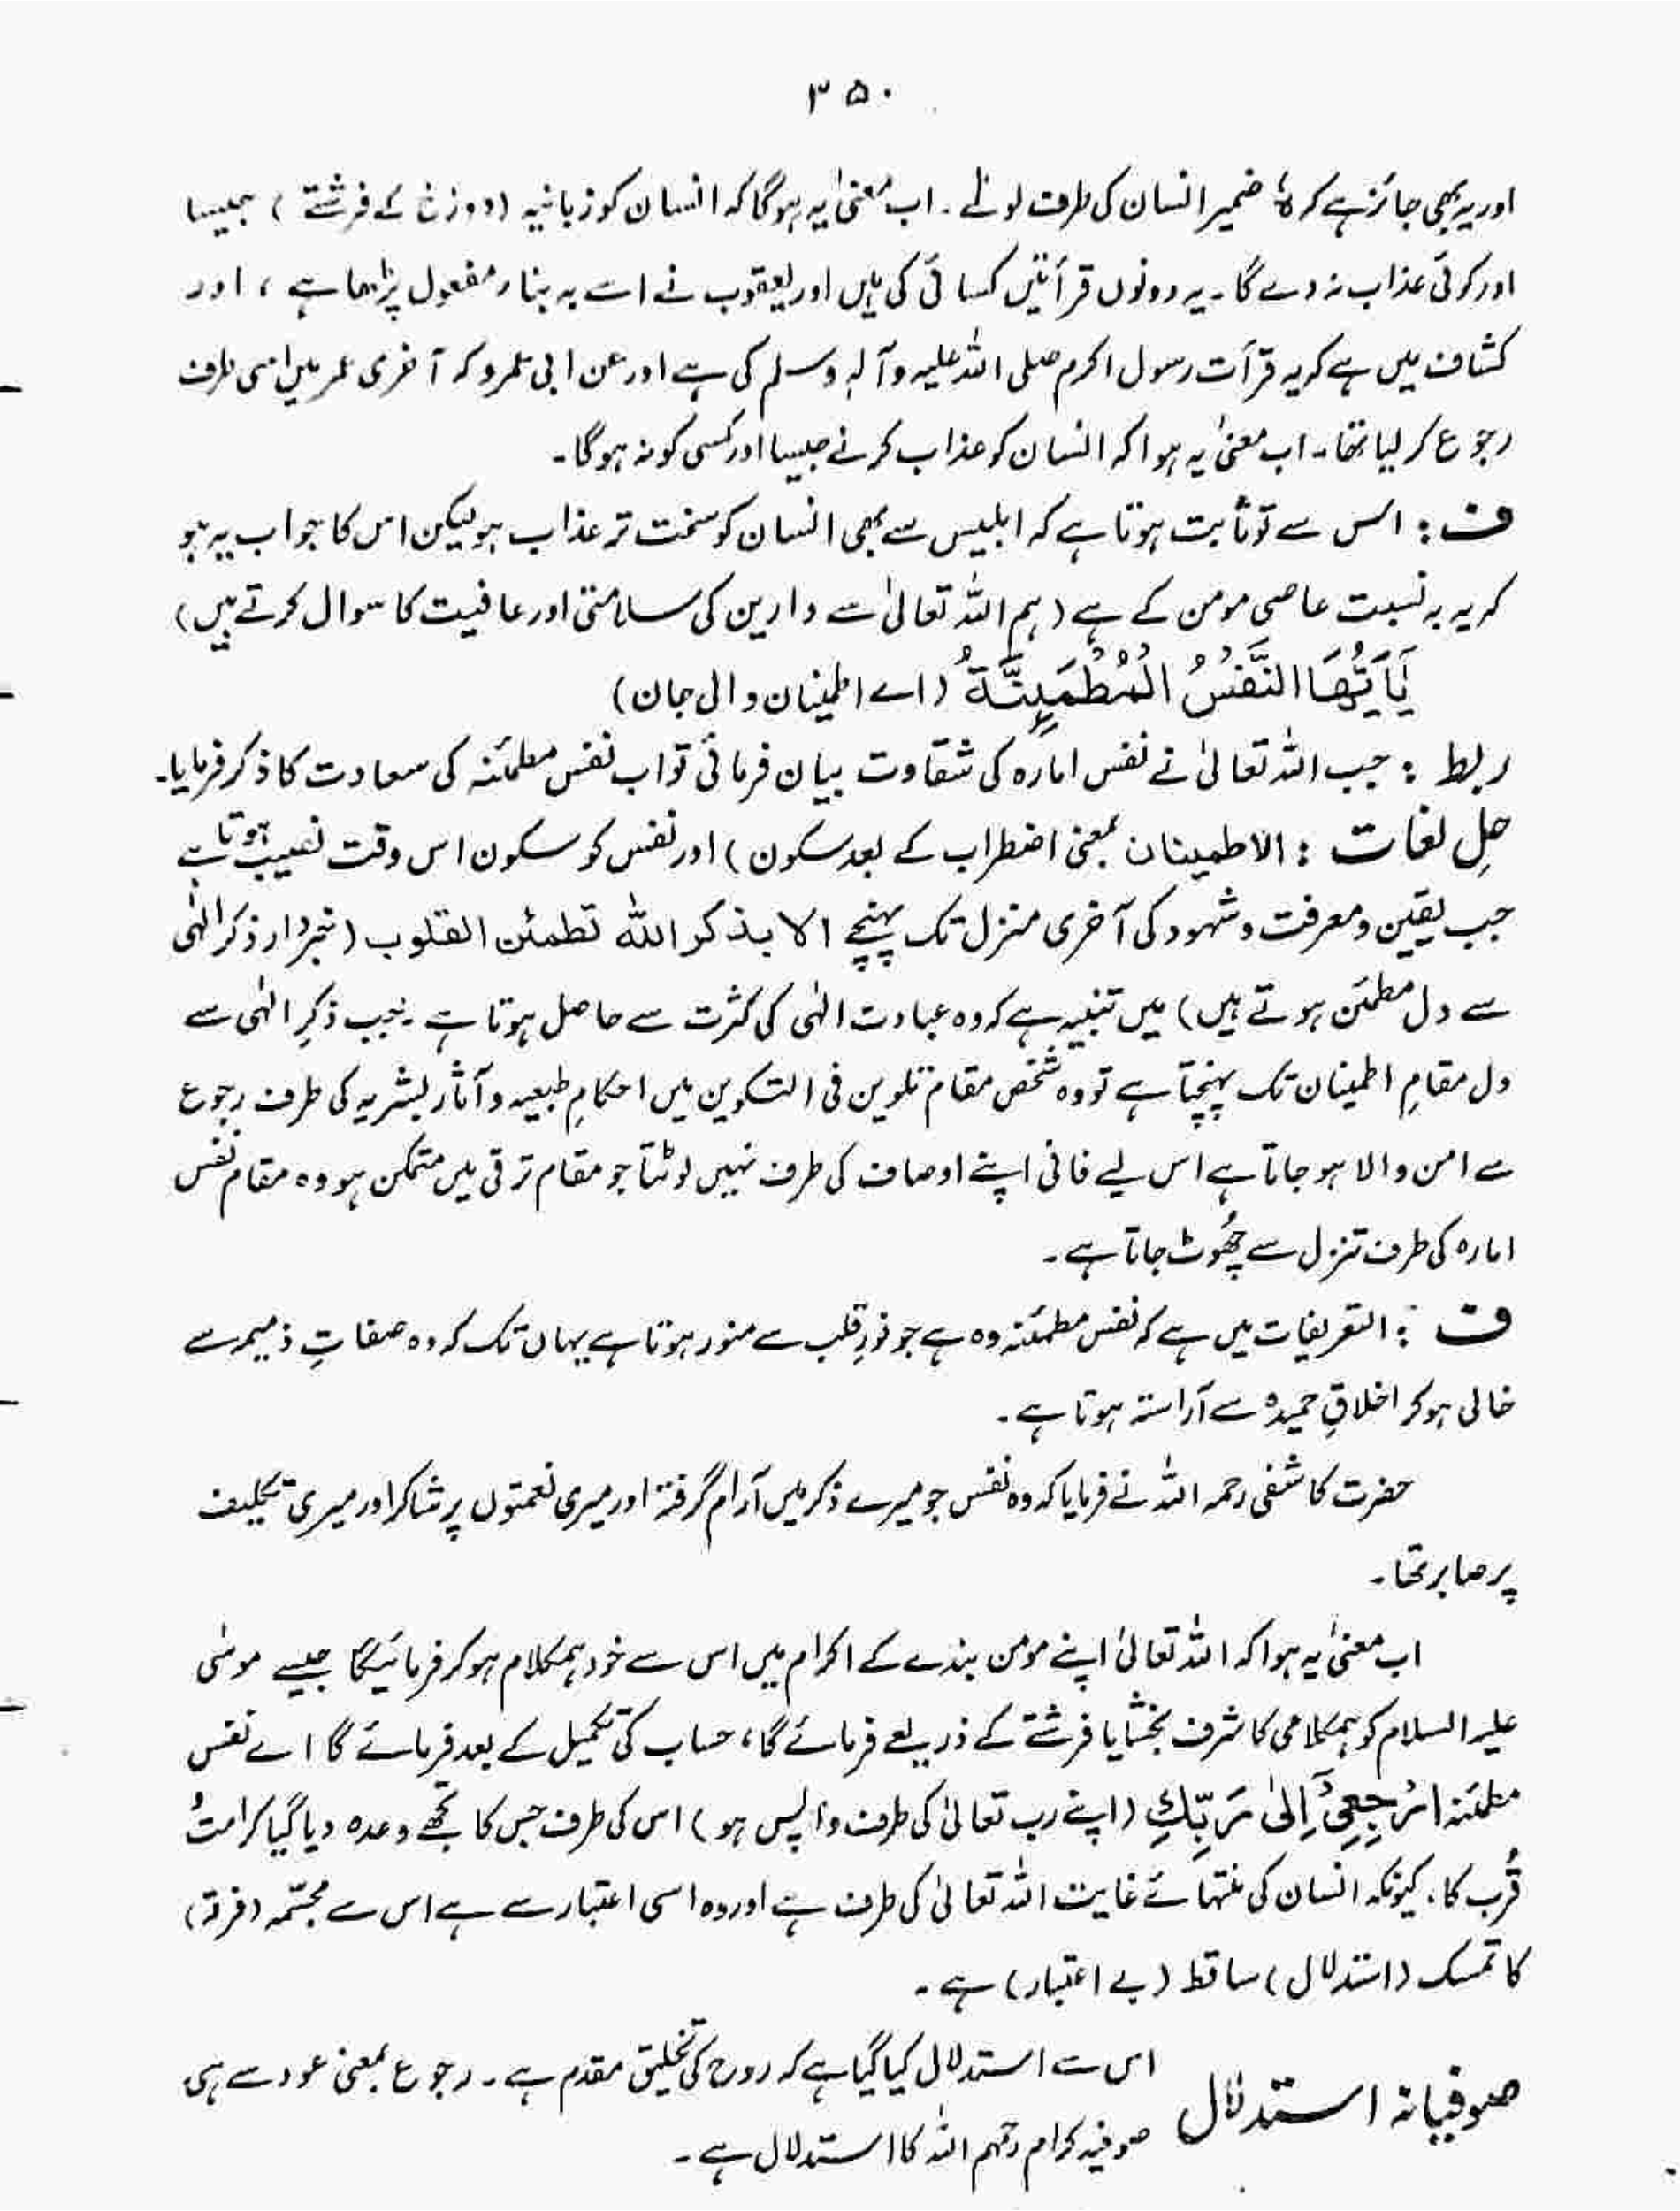 ۳۵۰
اور یہ بھی جائز ہے کہ ہٗ ضمیر انسان کی طرف لوٹے ۔ اب معنیٰ یہ ہوگا کہ انسان کو زبانیہ (دوزخ کے فرشتے) جیسا
اور کوئی عذاب نہ دے گا ۔ یہ دونوں قرأتیں کسائی کی ہیں اور یعقوب نے اسے بہ بناء مفعول پڑھا ہے ، اور
کشاف میں ہے کہ یہ قرأت رسول اکرم صلی اللہ علیہ وآلہٖ وسلم کی ہے اور عن ابی عمرو کہ آخری عمر میں اسی طرف
رجوع کر لیا تھا ۔ اب معنیٰ یہ ہوا کہ انسان کو عذاب کرنے جیسا اور کسی کو نہ ہوگا ۔
ف : اس سے تو ثابت ہوتا ہے کہ ابلیس سے بھی انسان کو سخت تر عذاب ہو لیکن اس کا جواب یہ ہو
کہ یہ بہ نسبت عاصی مومن کے ہے (ہم اللہ تعالیٰ سے دارین کی سلامتی اور عافیت کا سوال کرتے ہیں)
يٰٓاَيَّتُهَا النَّفْسُ الْمُطْمَئِنَّةُ (اے اطمینان والی جان)
ربط : جب اللہ تعالیٰ نے نفس امارہ کی شقاوت بیان فرمائی تو اب نفس مطمئنہ کی سعادت کا ذکر فرمایا۔
حلِ لغات : الاطمینان بمعنی اضطراب کے بعد سکون) اور نفس کو سکون اس وقت نصیب ہوتا ہے
جب یقین و معرفت و شہود کی آخری منزل تک پہنچے الا بذکر اللہ تطمئن القلوب (خبردار ذکر الٰہی
سے دل مطمئن ہوتے ہیں) میں تنبیہ ہے کہ وہ عبادت الٰہی کی کثرت سے حاصل ہوتا ہے ۔ جب ذکرِ الٰہی سے
دل مقامِ اطمینان تک پہنچتا ہے تو وہ شخص مقام تلوین فی التکوین میں احکامِ طبعیہ و آثار بشریہ کی طرف رجوع
سے امن والا ہو جاتا ہے اس لیے فانی اپنے اوصاف کی طرف نہیں لوٹتا جو مقام ترقی میں متمکن ہو وہ مقام نفس
امارہ کی طرف تنزل سے چھُوٹ جاتا ہے ۔
ف : التعریفات میں ہے کہ نفس مطمئنہ وہ ہے جو نورِ قلب سے منور ہوتا ہے یہاں تک کہ وہ صفاتِ ذمیمہ سے
خالی ہو کر اخلاقِ حمیدہ سے آراستہ ہوتا ہے ۔
حضرت کاشفی رحمہ اللہ نے فرمایا کہ وہ نفس جو میرے ذکر میں آرام گرفتہ اور میری نعمتوں پر شاکر اور میری تکلیف
پر صابر تھا ۔
اب معنیٰ یہ ہوا کہ اللہ تعالیٰ اپنے مومن بندے کے اکرام میں اس سے خود ہمکلام ہو کر فرمائیگا جیسے موسٰی
علیہ السلام کو ہمکلامی کا شرف بخشا یا فرشتے کے ذریعے فرمائے گا ، حساب کی تکمیل کے بعد فرمائے گا اے نفس
مطمئنہ ارْجِعِيْٓ اِلىٰ رَبِّكِ (اپنے رب تعالیٰ کی طرف واپس ہو) اس کی طرف جس کا تجھے وعدہ دیا گیا کرامت و
قُرب کا ، کیونکہ انسان کی منتہائے غایت اللہ تعالیٰ کی طرف ہے اور وہ اسی اعتبار سے ہے اس سے مجسّمہ (فرقہ)
کا تمسک (استدلال) ساقط (بے اعتبار) ہے ۔
صوفیانہ استدلال اس سے استدلال کیا گیا ہے کہ روح کی تخلیق مقدم ہے ۔ رجوع بمعنی عود سے ہی
صوفیہ کرام رحمہم اللہ کا استدلال ہے ۔